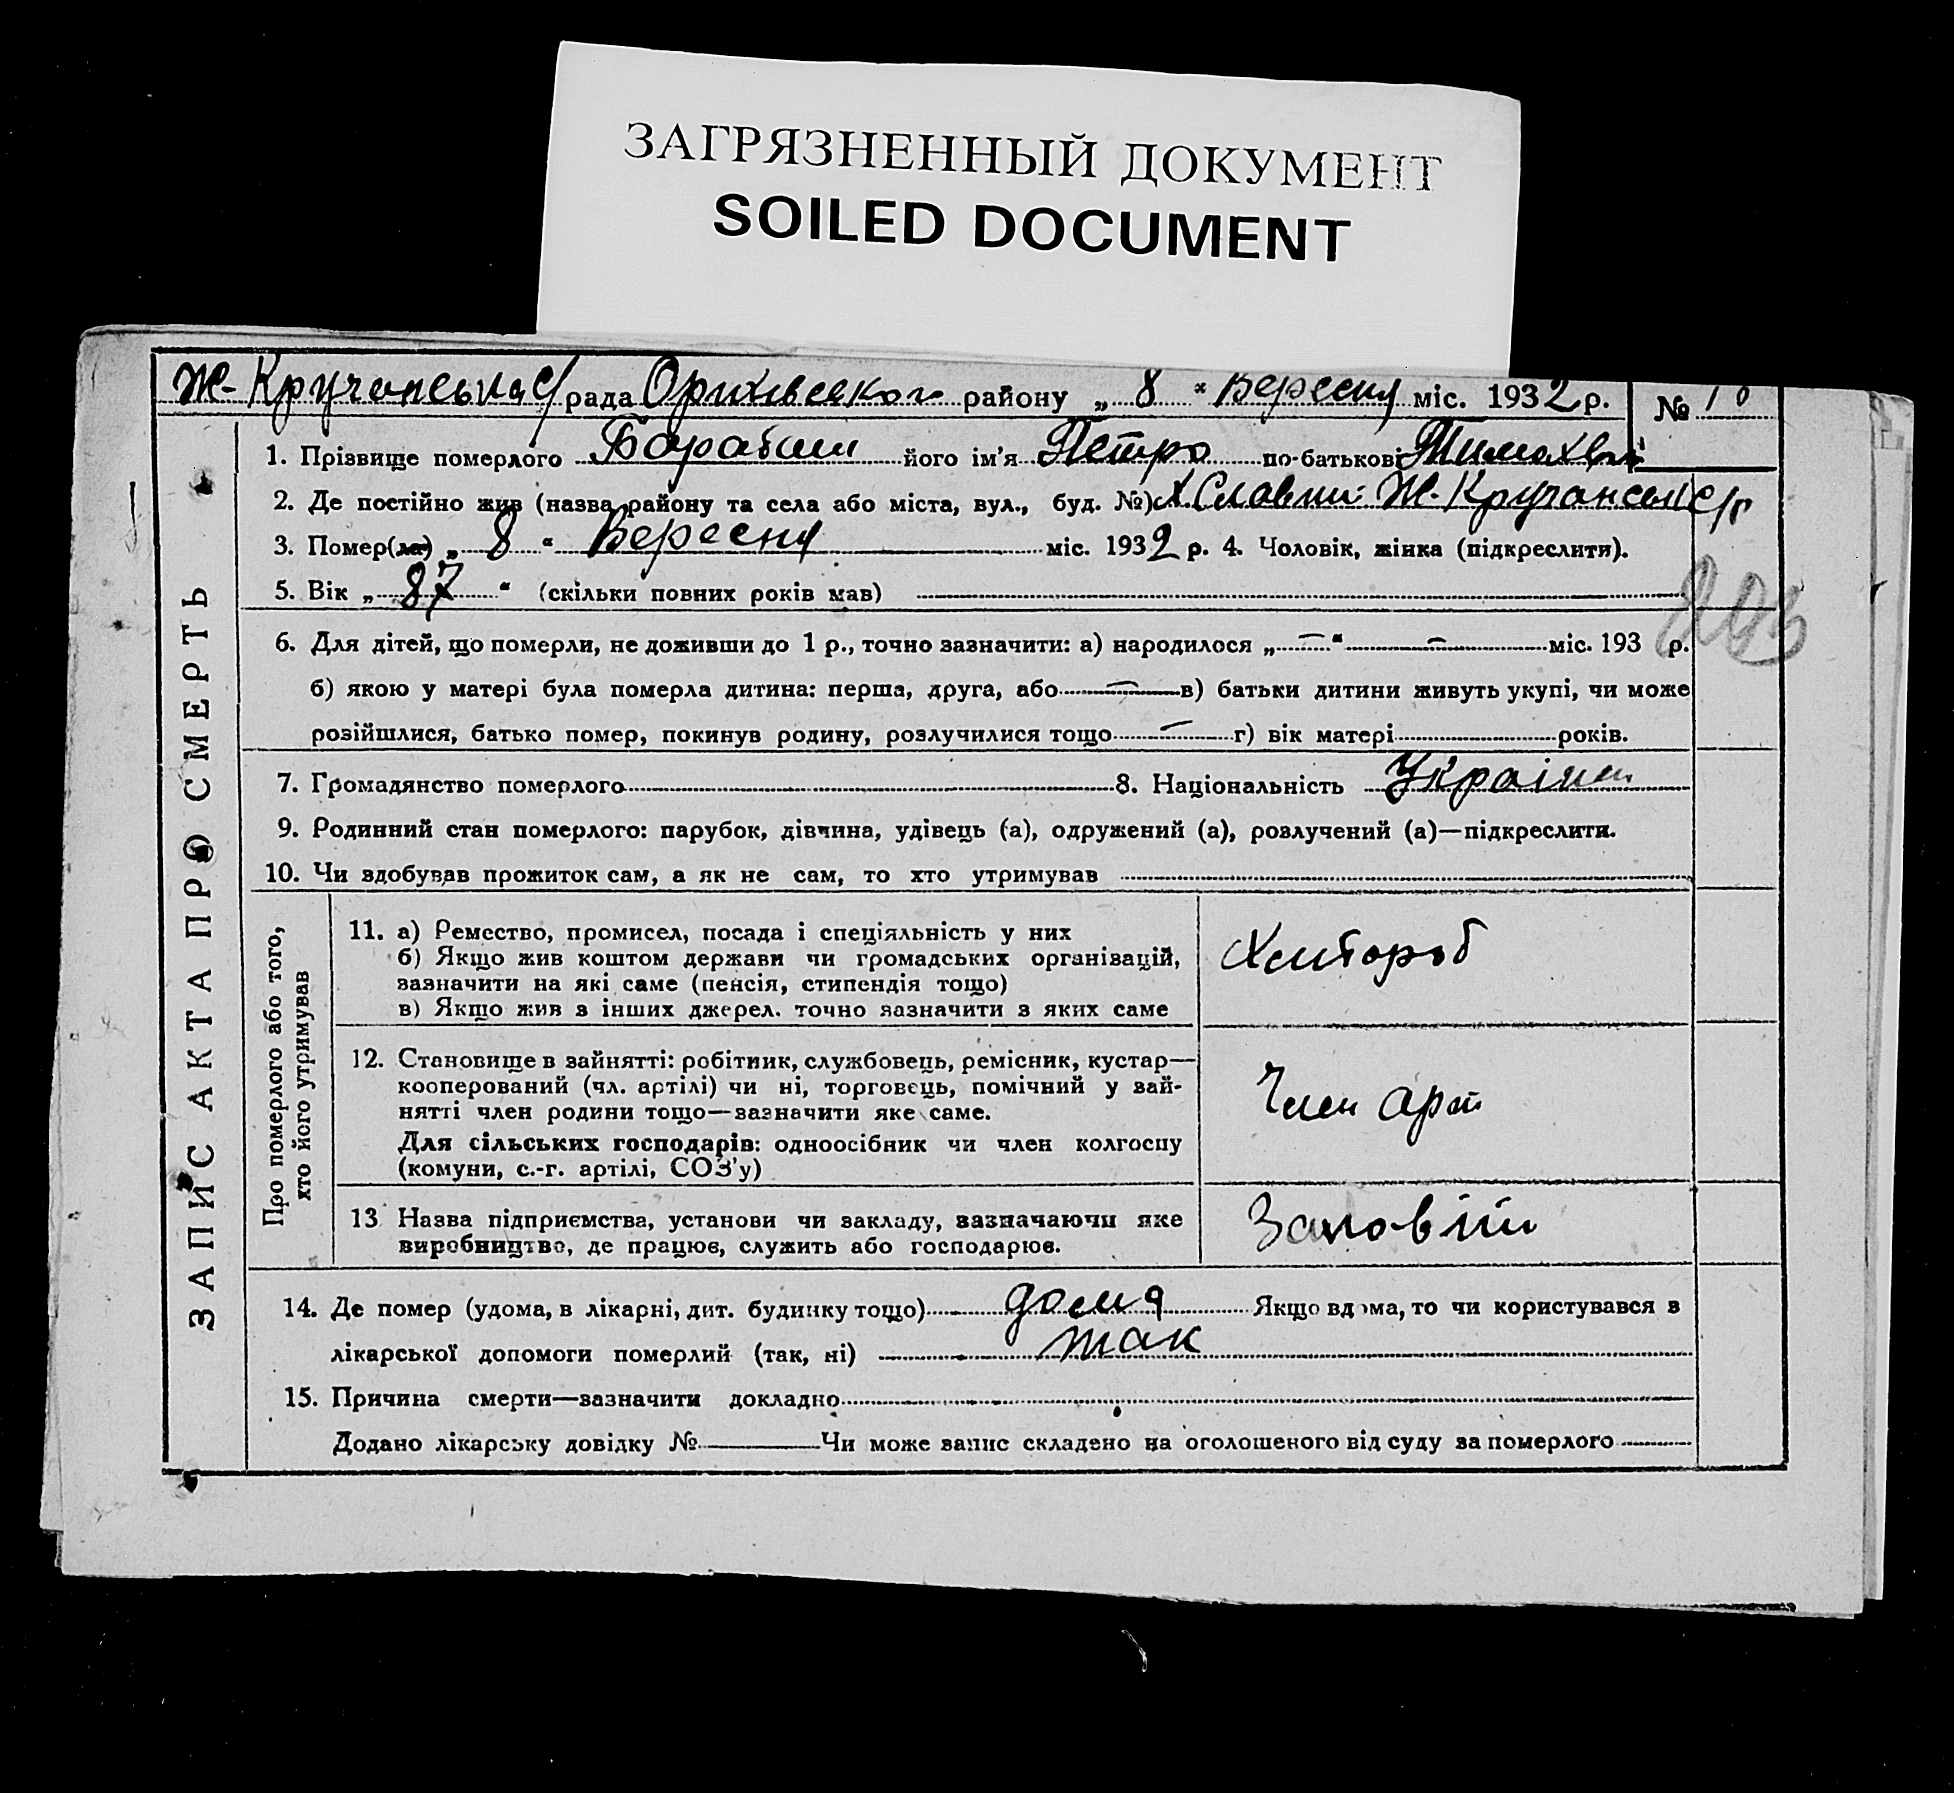 ЗАГРЯЗНЕННЫЙ ДОКУМЕНТ
SOILED DOCUMENT
Ж-Кручанська С/рада Оріхівськог району „ 8 “ Вересня міс. 1932 р. № 10
ЗАПИС АКТА ПРО СМЕРТЬ
1. Прізвище померлого Барабаш його ім'я Петро по-батькові
2. Де постійно жив (назва району та села або міста, вул., буд. №) Х. Ж. Кручанськ С/р
3. Помер(ла) „ 8 “ Вересня міс. 1932 р. 4. Чоловік, жінка (підкреслити).
5. Вік „ 87 “ (скільки повних років мав)
6. Для дітей, що померли, не доживши до 1 р., точно зазначити: а) народилося „ — “ — міс. 193 р.
б) якою у матері була померла дитина: перша, друга, або — в) батьки дитини живуть укупі, чи може
розійшлися, батько помер, покинув родину, розлучилися тощо — г) вік матері років.
7. Громадянство померлого 8. Національність Україн
9. Родинний стан померлого: парубок, дівчина, удівець (а), одружений (а), розлучений (а)—підкреслити.
10. Чи здобував прожиток сам, а як не сам, то хто утримував
Про померлого або того,
хто його утримував
11. а) Ремество, промисел, посада і спеціяльність у них
б) Якщо жив коштом держави чи громадських організацій,
зазначити на які саме (пенсія, стипендія тощо)
в) Якщо жив з інших джерел. точно зазначити з яких саме
Хлібороб
12. Становище в зайнятті: робітник, службовець, ремісник, кустар—
кооперований (чл. артілі) чи ні, торговець, помічний у зай-
нятті член родини тощо—зазначити яке саме.
Для сільських господарів: одноосібник чи член колгоспу
(комуни, с.-г. артілі, СОЗ'у)
Член арт
13 Назва підприємства, установи чи закладу, зазначаючи яке
виробництво, де працює, служить або господарює.
14. Де помер (удома, в лікарні, дит. будинку тощо) дома Якщо вдома, то чи користувався з
лікарської допомоги померлий (так, ні) так
15. Причина смерти—зазначити докладно
Додано лікарську довідку № Чи може запис складено на оголошеного від суду за померлого